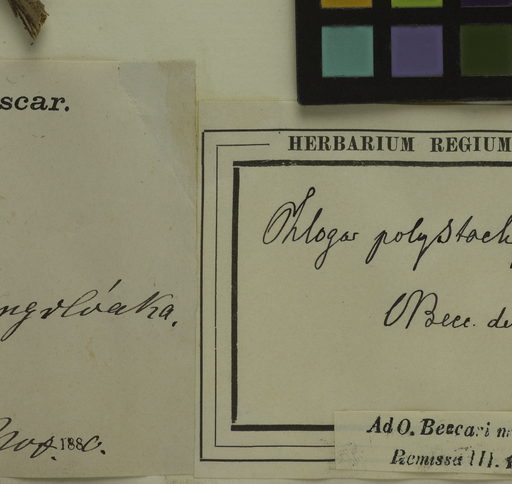 scar.
ngvlóaka.
Nov. 1880.
HERBARIUM REGIUM
Phloga polystach
O Becc. de
Ad O. Beccari m
Remissa III.